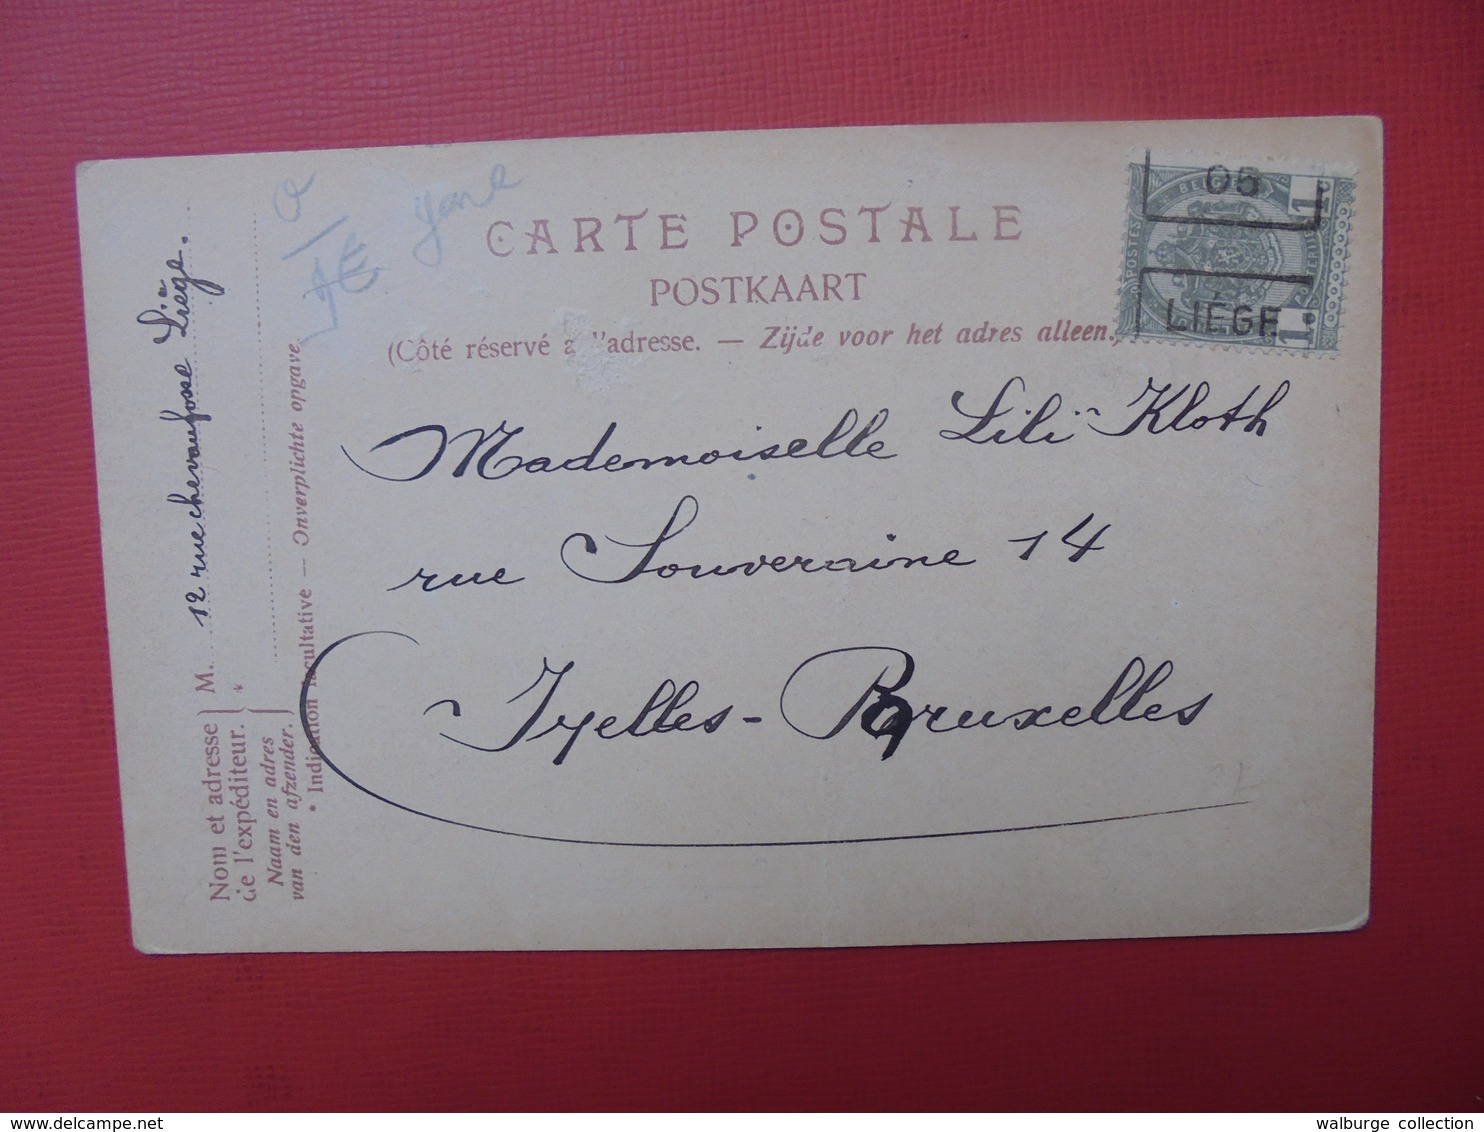 CARTE POSTALE
POSTKAART
(Côté réservé à l'adresse. — Zijde voor het adres alleen.)
05
LIÉGE
POSTES
1
1
Mademoiselle Lili Kloth
rue Souveraine 14
Ixelles - Bruxelles
12 rue chevaufosse Liège.
Nom et adresse
de l'expéditeur.
M.
*
Naam en adres
van den afzender.
* Indication facultative — Onverplichte opgave.
1€
www.delcampe.net
walburge collection